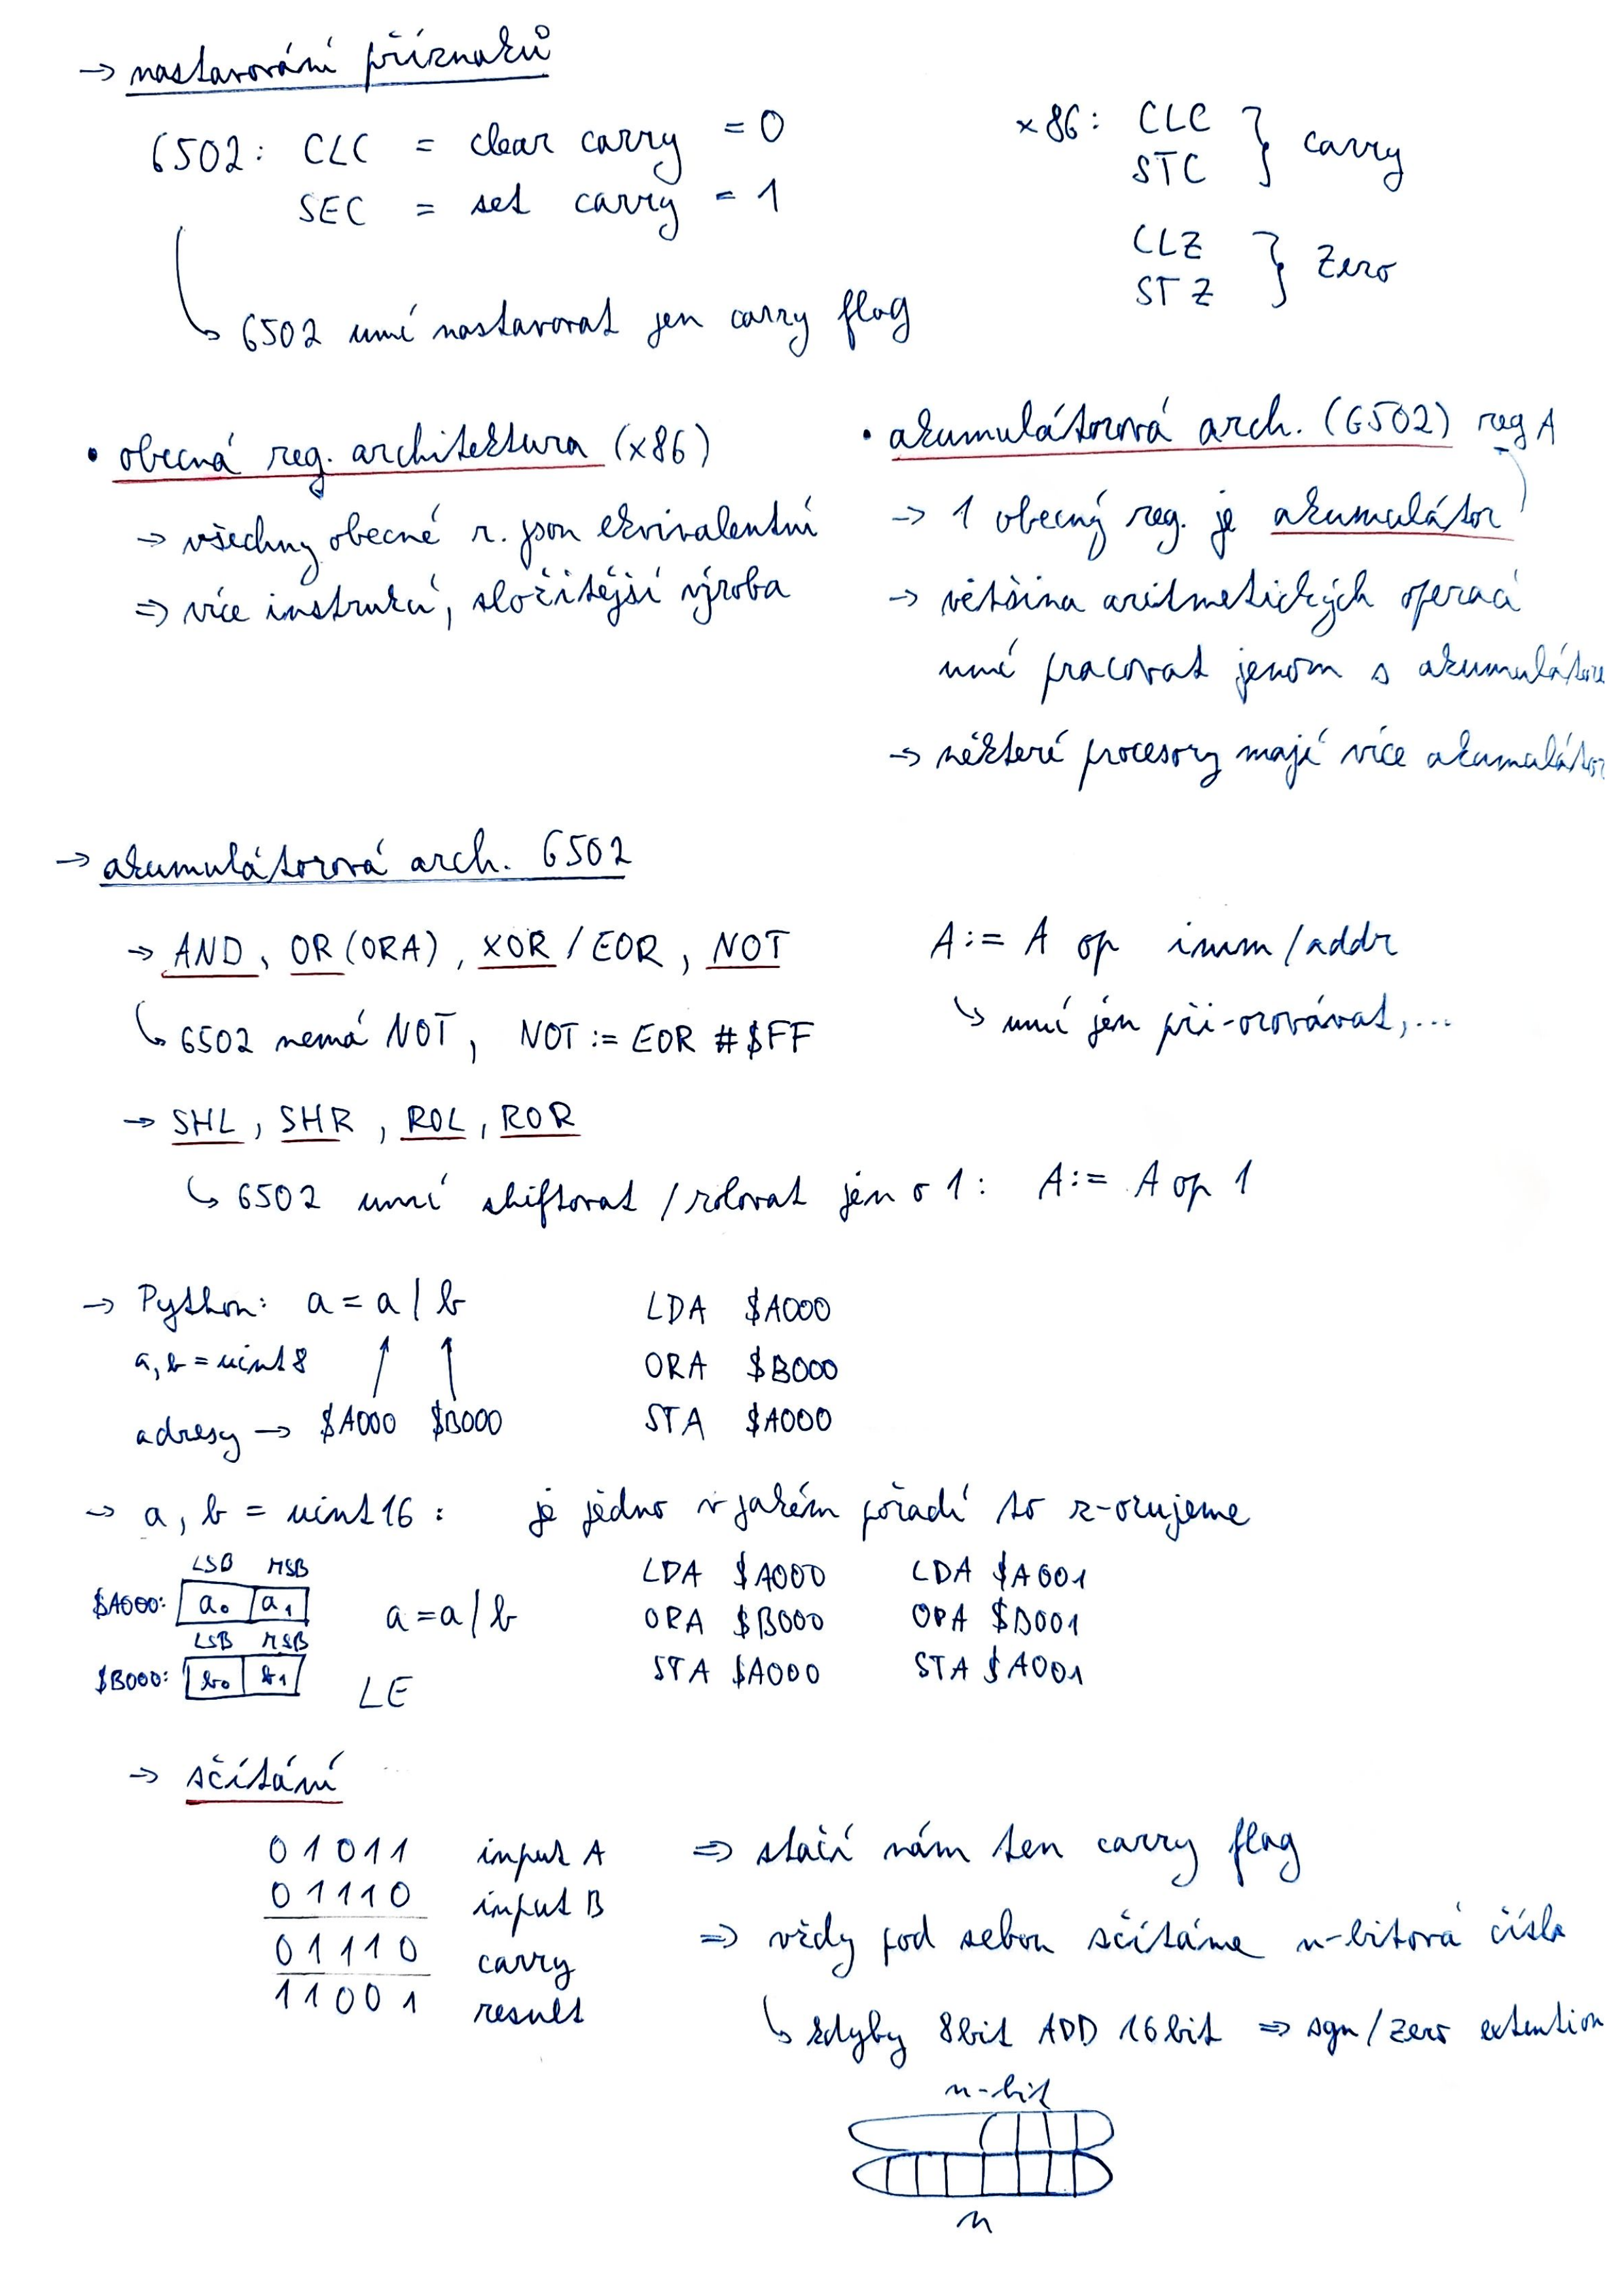 → nastavování příznaků
6502: CLC = clear carry = 0
SEC = set carry = 1
↳ 6502 umí nastavovat jen carry flag
x86: CLC
STC } carry
CLZ
STZ } Zero
• obecná reg. architektura (x86)
→ všechny obecné r. jsou ekvivalentní
⇒ více instrukcí, složitější výroba
• akumulátorová arch. (6502) reg A
→ 1 obecný reg. je akumulátor
→ většina aritmetických operací
umí pracovat jenom s akumulátore
→ některé procesory mají více akumulátor
→ akumulátorová arch. 6502
→ AND, OR (ORA), XOR / EOR, NOT
↳ 6502 nemá NOT, NOT := EOR #$FF
A := A op imm/addr
↳ umí jen při-orovávat,...
→ SHL, SHR, ROL, ROR
↳ 6502 umí shiftovat / rolovat jen o 1: A := A op 1
→ Python: a = a | b
a, b = uint8
adresy → $A000 $B000
LDA $A000
ORA $B000
STA $A000
→ a, b = uint16: je jedno v jakém pořadí to z-orujeme
LSB MSB
$A000: a0 a1
LSB MSB
$B000: b0 b1
a = a | b
LE
LDA $A000 LDA $A001
ORA $B000 ORA $B001
STA $A000 STA $A001
→ sčítání
01011 input A
01110 input B
01110 carry
11001 result
⇒ stačí nám ten carry flag
⇒ vždy pod sebou sčítáme n-bitová čísla
↳ kdyby 8bit ADD 16bit ⇒ sgn/zero extention
n-bit
n